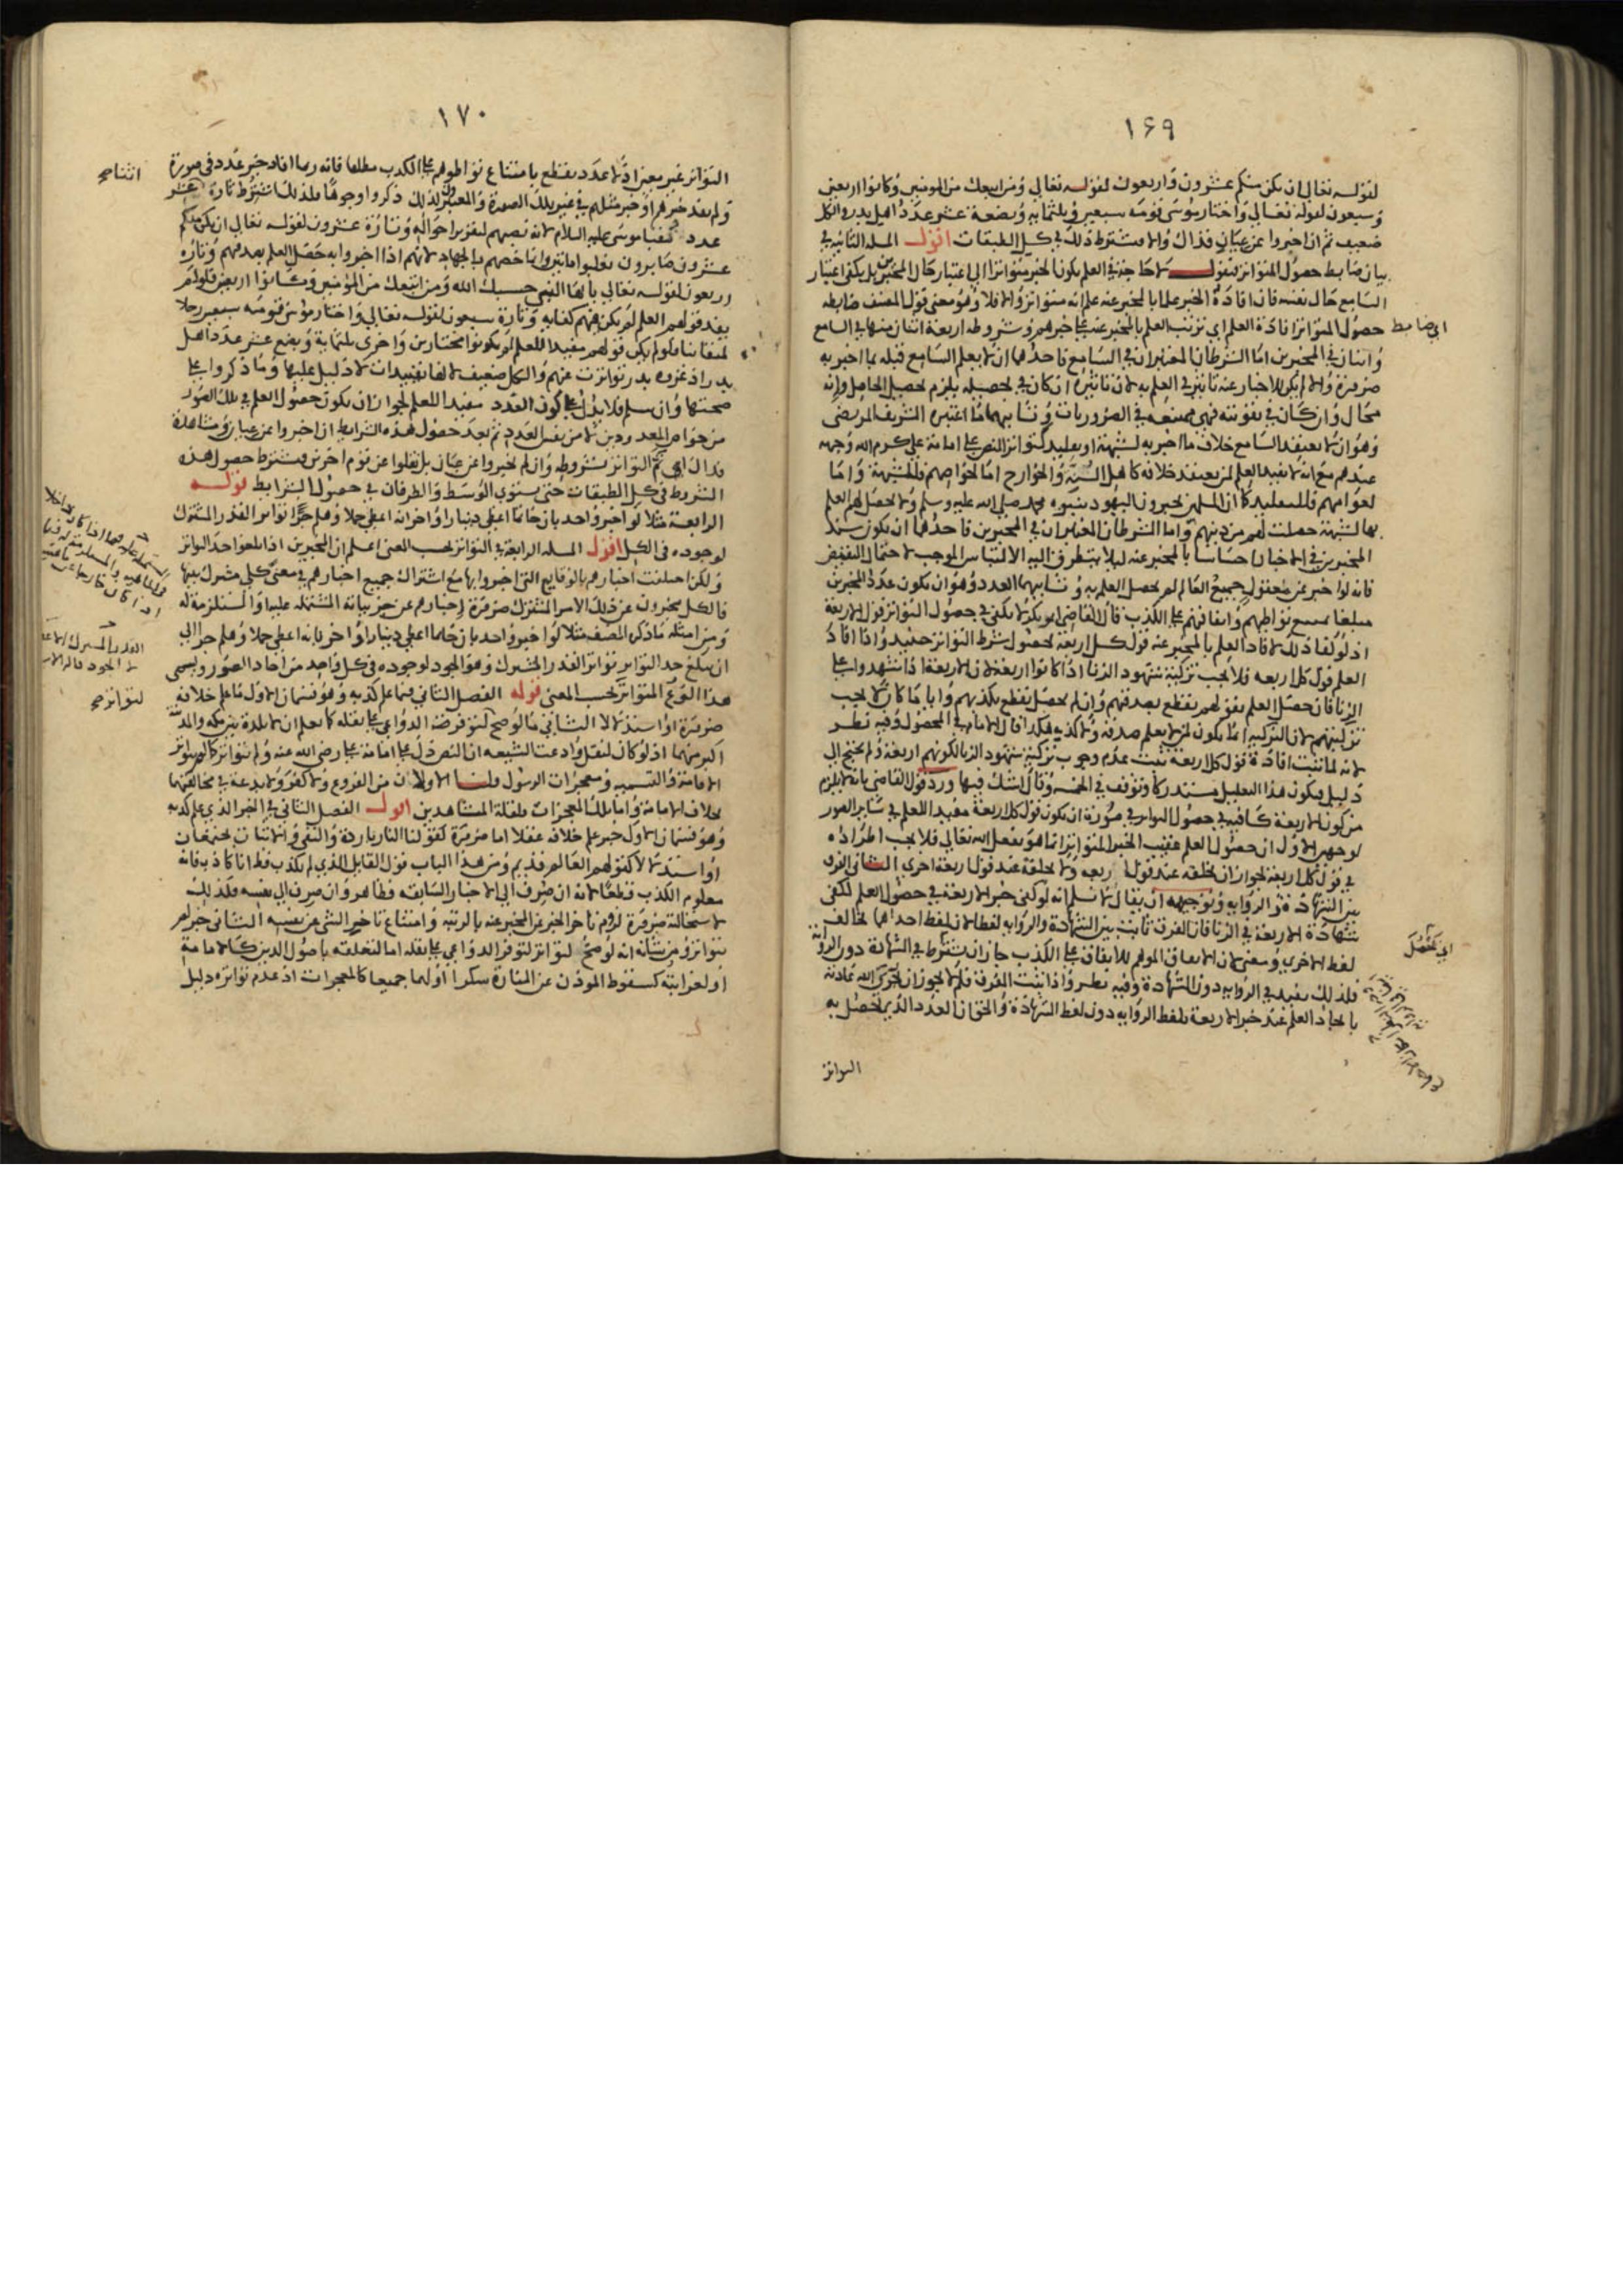 ١٦٩
لقوله تعالى ان يكن منكم عشرون واربعون لقوله تعالى ومن اتبعك من المومنين وكانوا اربعين
وسبعون لقوله تعالى واختار موسى قومه سبعين وثلثمايه وبضعة عشر عدد اهل بدر والكل
ضعيف ثم ان اخبروا عن عيان فذاك والا فيشترط ذلك في كل الطبقات اقول المسله الثانيه في
بيان ضابط حصول المتواتر فنقول لا حاجة في العلم بكون الخبر متواترا الى اعتبار حال المخبرين بل يكفي اعتبار
السامع حال نفسه فان افاده الخبر علما بالمخبر عنه علم انه متواتر والا فلا وهو معنى قول المصنف ضابطه
اي ضابط حصول المتواتر افادة العلم اي ترتب العلم بالمخبر عنه على خبرهم وشروطه اربعة اثنان منها في السامع
واثنان في المخبرين اما الشرطان المعتبران في السامع فاحدهما ان لا يعلم السامع قبله بما اخبر به
ضرورة والا لم يكن للاخبار عنه تاثير في العلم به لان تاثيره ان كان في تحصيله يلزم تحصيل الحاصل وانه
محال وان كان في تقويته فهي ممتنعه في الضروريات وثانيهما ما اعتبره الشريف المرتضى
وهو ان لا يعتقد السامع خلاف ما اخبر به لشبهة او تقليد كتواتر النص على امامة علي كرم الله وجهه
عندهم مع انه لا يفيد العلم لمن يعتقد خلافه كاهل السنة والخوارج اما لخواصهم فللشبهة واما
لعوامهم فللتقليد كما ان المسلمين يخبرون اليهود بنبوه محمد صلى الله عليه وسلم ولا يحصل لهم العلم
بها لشبهة حصلت لهم من دينهم واما الشرطان المعتبران في المخبرين فاحدهما ان يكون سند
المخبرين في الاخبار احساسا بالمخبر عنه ليلا يتطرق اليه الالتباس الموجب لاحتمال النقيض
فانه لو اخبر عن معقول جميع العالم لم يحصل العلم به وثانيهما العدد وهو ان يكون عدد المخبرين
مبلغا يمتنع تواطيهم واتفاقهم على الكذب قال القاضي ابو بكر لا يكفي في حصول التواتر قول الاربعة
اذ لو كفا ذلك لافاد العلم بالمخبر عنه قول كل اربعة لحصول شرط التواتر حينيذ واذا افاد
العلم قول كل اربعه فلا يجب تزكية شهود الزنا اذا كانوا اربعة لان الاربعة اذا شهدوا على
الزنا فان حصل العلم بقولهم يقطع بصدقهم وان لم يحصل يقطع بكذبهم وايا ما كان لا يجب
تزكيتهم لان التزكية انما يكون لمن لا يعلم صدقه ولا كذبه هكذا قال الامام في المحصول وفيه نظر
لانه لما تبت افادة قول كل اربعة تبت عدم وجوب تزكية شهود الزنا لكونهم اربعة ولم يحتج الى
دليل فيكون هذا التعليل مستدركا وتوقف في الخمسه وقال لا شك فيها ورد قول القاضي بانه لا يلزم
من كون الاربعة كافيه في حصول التواتر في صورة ان يكون قول كل اربعة مفيد اللعلم في ساير الصور
لوجهين الاول ان حصول العلم عقيب الخبر المتواتر انما هو بفعل الله تعالى فلا يجب اطراده
في قول كل اربعة لجواز ان يخلقه عند قول اربعه ولا يخلقه عند قول اربعة اخرى الثاني الفرق
بين الشهادة والروايه وتوجيهه ان يقال لا نسلم انه لو كفى خبر الاربعة في حصول العلم لكفى
شهادة الاربعة في الزنا فان الفرق ثابت بين الشهادة والروايه لفظا لان لفظ احداهما يخالف
لفظ الاخرى ومعنى لان الاتفاق الموهم للاتفاق على الكذب جاز ان يشترط في الشهادة دون الرواية
فلذلك يفيد في الروايه دون الشهادة وفيه نظر واذا ثبت الفرق فلم لا يجوز ان يجري الله عادته
بايجاد العلم عند خبر الاربعة بلفظ الروايه دون لفظ الشهادة والحق ان العدد الذي يحصل به
التواتر
اي يحصل
١٧٠
التواتر غير معين اذ لا عدد يقطع بامتناع تواطوهم على الكذب مطلقا فانه ربما افاد خبر عدد في صورة
ولم يفد خبرهم او خبر مثلهم في غير تلك الصورة والمعينون لذلك ذكروا وجوها فلذلك اشترط تارة اثنا عشر
عدد نقبا موسى عليه السلام لانه نصبهم لتعريف احواله وتارة عشرون لقوله تعالى ان يكن منكم
عشرون صابرون يغلبوا مايتين وانما خصهم بالجهاد لانهم اذا اخبروا به حصل العلم بصدقهم وتارة
اربعون لقوله تعالى يا ايها النبي حسبك الله ومن اتبعك من المؤمنين وكانوا اربعين فلو لم
يفد قولهم العلم لم يكن فيهم كفايه وتارة سبعون لقوله تعالى واختار موسى قومه سبعين رجلا
لميقاتنا فلو لم يكن قولهم مفيدا للعلم لم يكونوا مختارين واخرى ثلثمايه وبضع عشر عدد اهل
بدر اذ غزوه بدر تواترت عنهم والكل ضعيف لانها تقييدات لا دليل عليها وما ذكروا على
صحتها وان سلم فلا يدل على كون العدد مفيدا للعلم لجواز ان يكون حصول العلم في تلك الصور
من خواص المعدودين لا من نفس العدد ثم بعد حصول هذه الشرايط ان اخبروا عن عيان ومشاهدة
فذاك اي تم التواتر بشروطه وان لم يخبروا عن عيان بل نقلوا عن قوم اخرين فيشترط حصول هذه
الشروط في كل الطبقات حتى يستوي الوسط والطرفان في حصول الشرايط قوله
الرابعة مثلا لو اخبر واحد بان حاتما اعطى دينارا واخر انه اعطى جملا وهلم جرا تواتر القدر المشترك
لوجوده في الكل اقول المسله الرابعة في التواتر بحسب المعنى اعلم ان المخبرين اذا بلغوا حد التواتر
ولكن اختلفت اخبارهم بالوقايع التي اخبروا بها مع اشتراك جميع اخبارهم في معنى كلي مشترك بينها
فالكل مخبرون عن ذلك الامر المشترك ضرورة اخبارهم عن جزيياته المشتمله عليه او المستلزمة له
ومن امثله ما ذكره المصنف مثلا لو اخبر واحد بان حاتما اعطى دينارا واخر بانه اعطى جملا وهلم جرا الى
ان يبلغ حد التواتر تواتر القدر المشترك وهو الجود لوجوده في كل واحد من احاد الصور ويسمى
هذا النوع المتواتر بحسب المعنى قوله الفصل الثاني فيما علم كذبه وهو قسمان الاول ما علم خلافه
ضرورة او استدلالا الثاني ما لو صح لتوفرت الدواعي على نقله كما نعلم ان لا بلدة بين مكه والمدينة
اكبر منهما اذ لو كان لنقل وادعت الشيعه ان النص دل على امامة علي رضي الله عنه ولم تتواتر كما لم تتواتر
الاقامة والتسميه ومعجزات الرسول قلنا الاولان من الفروع ولا كفر ولا بدعة في مخالفتهما
بخلاف الامامة واما تلك المعجزات فلقلة المشاهدين اقول الفصل الثاني في الخبر الذي علم كذبه
وهو قسمان الاول خبر علم خلافه عقلا اما ضرورة كقولنا النار باردة والنفي والاثبات يجتمعان
او استدلالا كقولهم العالم قديم ومن هذا الباب قول القايل الذي لم يكذب قط انا كاذب فانه
معلوم الكذب قطعا لانه ان صرف الى الاخبار السابقه فظاهر وان صرف الى نفسه فكذلك
لاستحالته ضرورة لزوم تاخر الخبر عن المخبر عنه بالرتبه وامتناع تاخير الشي عن نفسه الثاني خبر لم
يتواتر ومن شانه انه لو صح لتواتر لتوفر الدواعي على نقله اما لتعلقه باصول الدين كالامامة
او لغرابته كسقوط الموذن عن المنارة سكرا او لهما جميعا كالمعجرات اذ عدم تواتره دليل
لتواتر صح